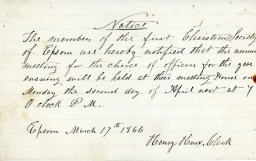 Notice
The members of the first Christian Society
of Epsom are hereby notified that the annual
meeting for the choice of officers for the year
ensuing will be held at their meeting House on
Monday the second day of April next at 7
O clock P.M.
Epsom March 17th 1866
Henry Clerk